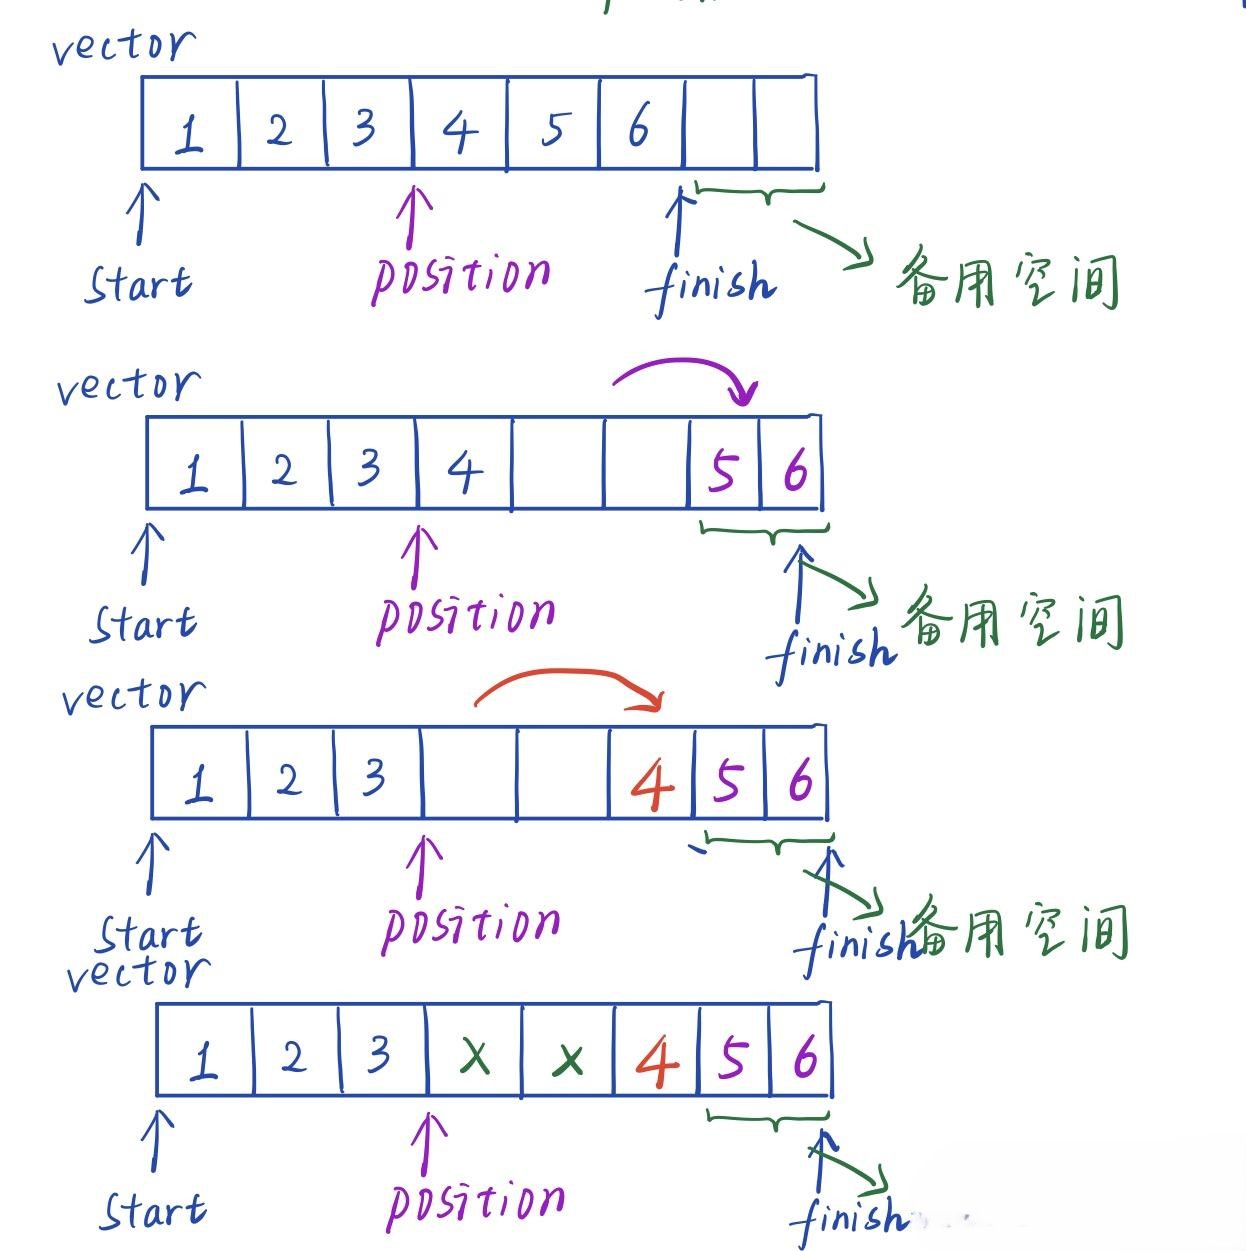 vector
1 2 3 4 5 6
start position finish 备用空间
vector
1 2 3 4 5 6
start position finish 备用空间
vector
1 2 3 4 5 6
start position finish 备用空间
vector
1 2 3 x x 4 5 6
start position finish